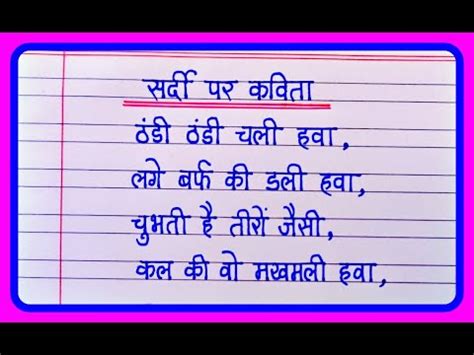 सर्दी पर कविता
ठंडी ठंडी चली हवा,
लगे बर्फ की डली हवा,
चुभती है तीरों जैसी,
कल की वो मखमली हवा,